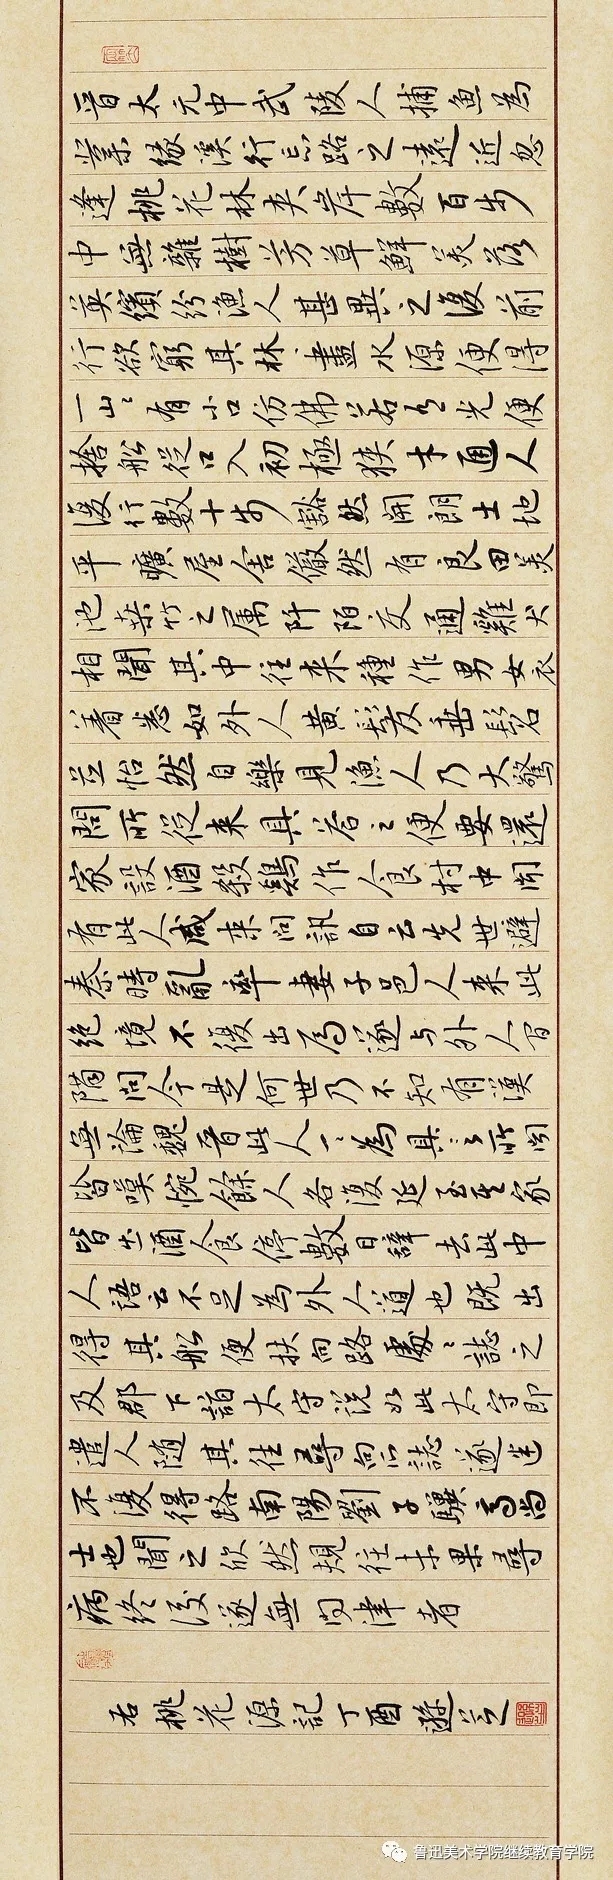 晋太元中武陵人捕鱼為
業緣溪行忘路之遠近忽
逢桃花林夾岸數百步
中無雜樹芳草鮮美落
英繽紛漁人甚異之復前
行欲窮其林林盡水源便得
一山山有小口仿佛若有光便
捨船從口入初極狹才通人
復行數十步豁然開朗土地
平曠屋舍儼然有良田美
池桑竹之属阡陌交通雞犬
相聞其中往来種作男女衣
着悉如外人黄髮垂髫
並怡然自樂見漁人乃大驚
問所從来具答之便要還
家設酒殺鷄作食村中聞
有此人咸来問訊自云先世避
秦時亂率妻子邑人来此
绝境不復出焉遂与外人间
隔問今是何世乃不知有漢
無論魏晋此人一一為具言所聞
皆嘆惋餘人各復延至其家
皆出酒食停數日辭去此中
人語云不足為外人道也既出
得其船便扶向路處處誌之
及郡下詣太守说如此太守即
遣人随其往尋向所誌遂迷
不復得路南陽劉子驥高尚
士也聞之欣然規往未果尋
病终後遂無问津者
右桃花源記丁酉
鲁迅美术学院继续教育学院